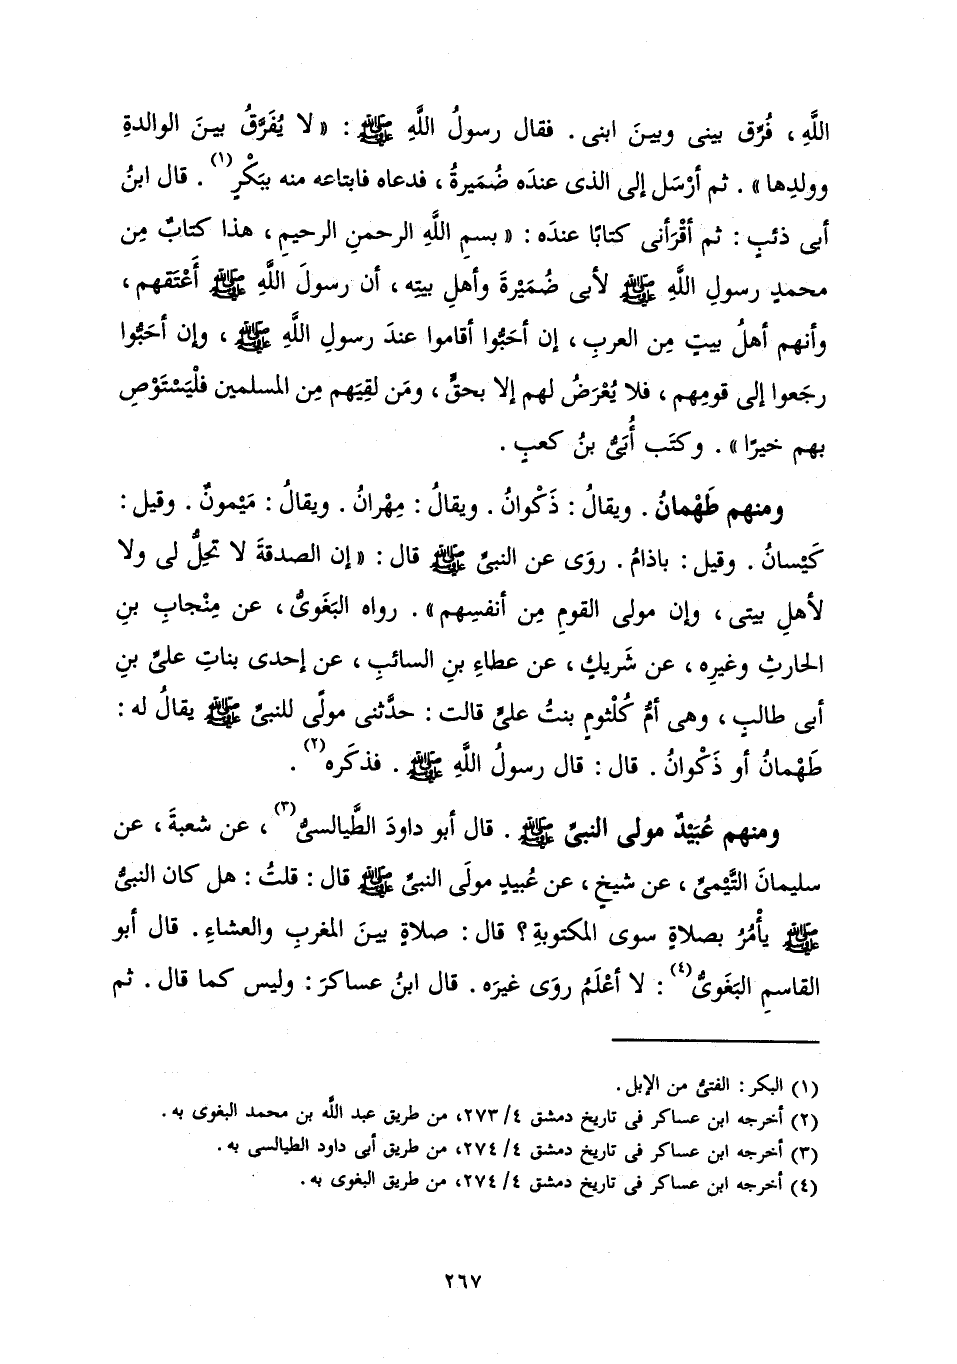 اللَّهِ ، فُرِّق بينى وبينَ ابنى . فقال رسولُ اللَّهِ ﷺ : « لا يُفَرَّقُ بينَ الوالدةِ
وولدِها » . ثم أرْسَل إلى الذى عندَه ضُمَيرةُ ، فدعاه فابتاعه منه ببَكْرٍ(١) . قال ابنُ
أبى ذئبٍ : ثم أقْرَأنى كتابًا عندَه : « بسمِ اللَّهِ الرحمنِ الرحيمِ ، هذا كتابٌ مِن
محمدٍ رسولِ اللَّهِ ﷺ لأبى ضُمَيْرةَ وأهلِ بيتِه ، أن رسولَ اللَّهِ ﷺ أَعْتَقهم ،
وأنهم أهلُ بيتٍ مِن العربِ ، إن أحَبُّوا أقاموا عندَ رسولِ اللَّهِ ﷺ ، وإن أحَبُّوا
رجَعوا إلى قومِهم ، فلا يُعْرَضُ لهم إلا بحقٍّ ، ومَن لقِيَهم مِن المسلمين فلْيَسْتَوْصِ
بهم خيرًا » . وكتَب أُبَىُّ بنُ كعبٍ .
ومنهم طَهْمانُ . ويقالُ : ذَكْوانُ . ويقالُ : مِهْرانُ . ويقالُ : مَيْمونٌ . وقيل :
كَيْسانُ . وقيل : باذامُ . روَى عن النبىِّ ﷺ قال : « إن الصدقةَ لا تحِلُّ لى ولا
لأهلِ بيتى ، وإن مولى القومِ مِن أنفسِهم » . رواه البَغَوىُّ ، عن مِنْجابِ بنِ
الحارثِ وغيرِه ، عن شَريكٍ ، عن عطاءِ بنِ السائبِ ، عن إحدى بناتِ علىِّ بنِ
أبى طالبٍ ، وهى أمُّ كُلْثومٍ بنتُ علىٍّ قالت : حدَّثنى مولًى للنبىِّ ﷺ يقالُ له :
طَهْمانُ أو ذَكْوانُ . قال : قال رسولُ اللَّهِ ﷺ . فذكَره(٢) .
ومنهم عُبَيْدٌ مولى النبىِّ ﷺ . قال أبو داودَ الطَّيالسىُّ(٣) ، عن شعبةَ ، عن
سليمانَ التَّيْمىِّ ، عن شيخٍ ، عن عُبيدٍ مولَى النبىِّ ﷺ قال : قلتُ : هل كان النبىُّ
ﷺ يأْمُرُ بصلاةٍ سوى المكتوبةِ ؟ قال : صلاةٍ بينَ المغربِ والعشاءِ . قال أبو
القاسمِ البَغَوىُّ(٤) : لا أعْلَمُ روَى غيرَه . قال ابنُ عساكرَ : وليس كما قال . ثم
(١) البكر : الفتىُّ من الإبل .
(٢) أخرجه ابن عساكر فى تاريخ دمشق ٤/ ٢٧٣، من طريق عبد اللَّه بن محمد البغوى به .
(٣) أخرجه ابن عساكر فى تاريخ دمشق ٤/ ٢٧٤، من طريق أبى داود الطيالسى به .
(٤) أخرجه ابن عساكر فى تاريخ دمشق ٤/ ٢٧٤، من طريق البغوى به .
٢٦٧